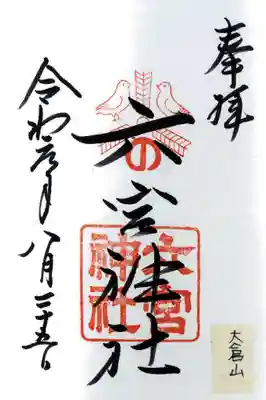 奉拝
六の宮神社
六宮神社
令和元年八月二十五日
大倉山